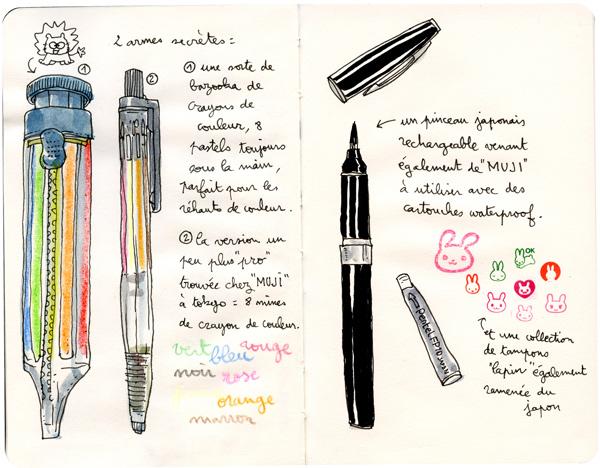 2 armes secrètes =
①
②
① une sorte de
bazooka de
crayons de
couleur, 8
pastels toujours
sous la main,
parfait pour les
rehauts de couleur.
② la version un
peu plus "pro"
trouvée chez "MUJI"
à tokyo = 8 mines
de crayon de couleur.
vert bleu rouge
noir rose
orange
marron
← un pinceau japonais
rechargeable venant
également de "MUJI"
à utiliser avec des
cartouches waterproof.
OK
Pentel FP10
et une collection
de tampons
"lapin" également
ramenée du
japon